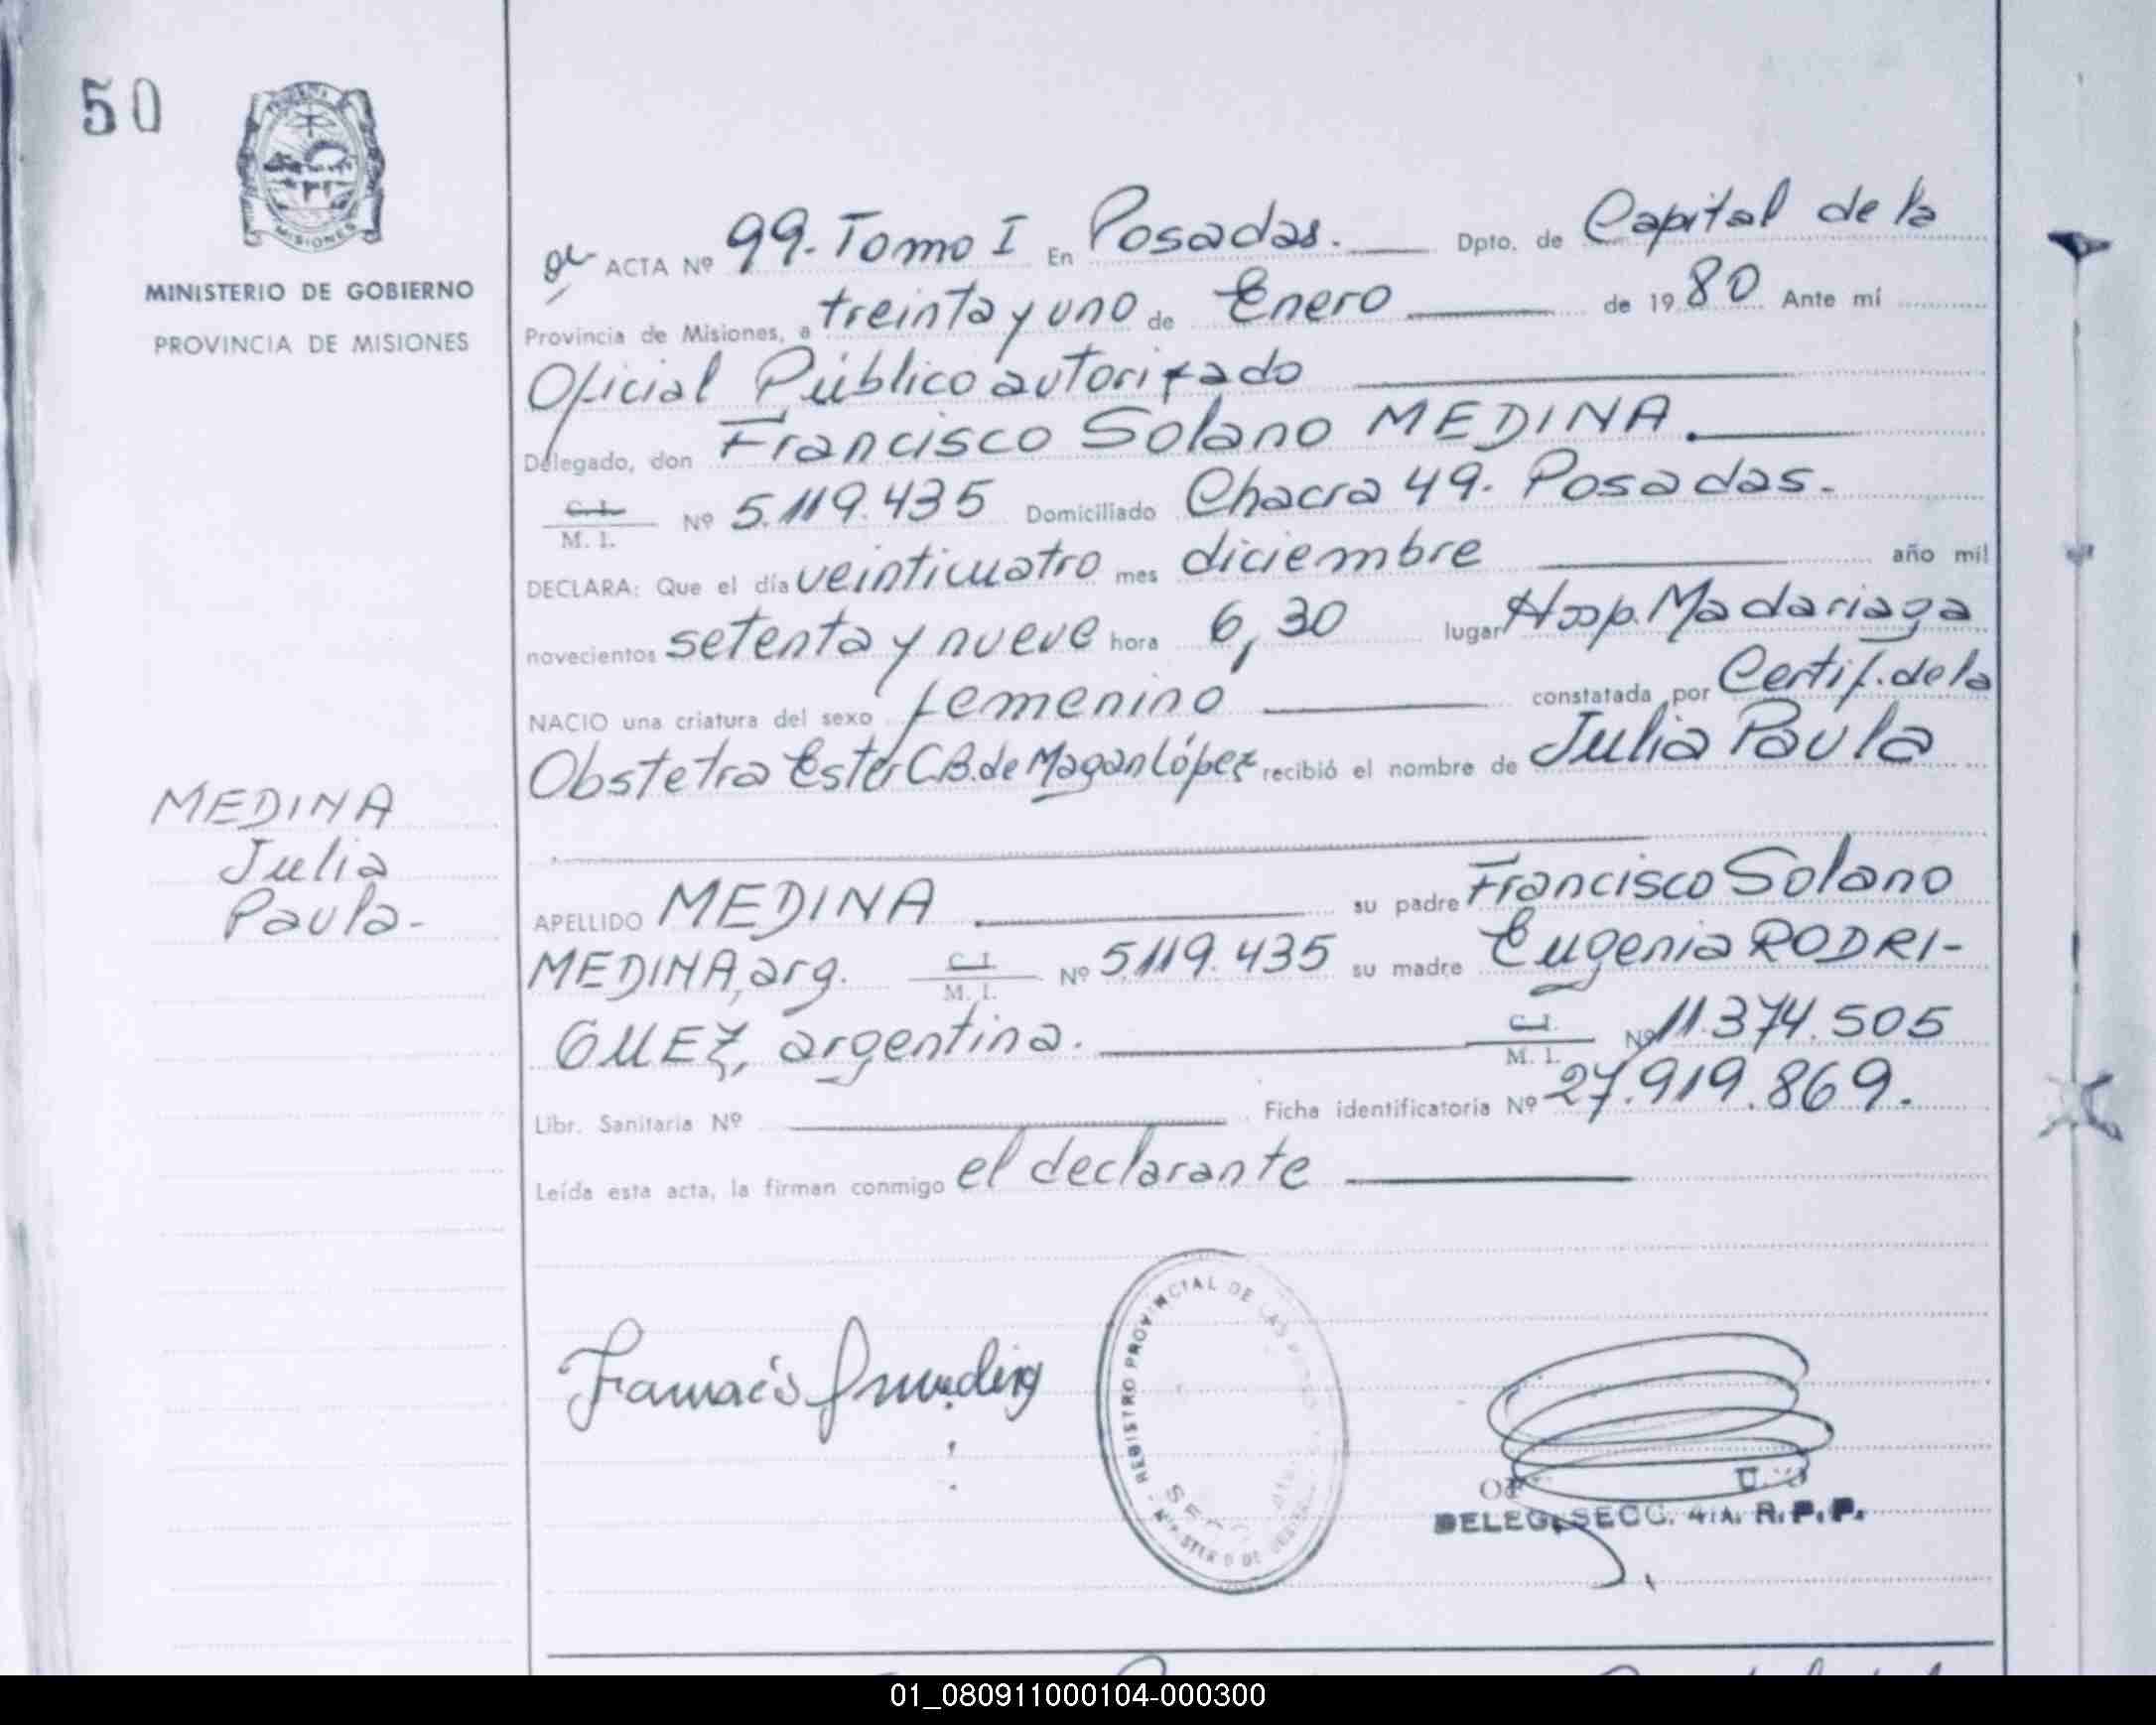 50
MISIONES
MINISTERIO DE GOBIERNO
PROVINCIA DE MISIONES
ACTA Nº 99. Tomo I En Posadas. Dpto. de Capital de la
Provincia de Misiones, a treinta y uno de Enero de 1980 Ante mí
Oficial Público autorizado
Delegado, don Francisco Solano MEDINA.
C. I.
M. I. Nº 5.119.435 Domiciliado Chacra 49. Posadas.
DECLARA: Que el día veinticuatro mes diciembre año mil
novecientos setenta y nueve hora 6,30 lugar Hosp. Madariaga
NACIO una criatura del sexo femenino constatada por Certif. de la
Obstetra Ester C.B. de Magan López recibió el nombre de Julia Paula
MEDINA
Julia
Paula-
APELLIDO MEDINA su padre Francisco Solano
MEDINA, arg. C. I. M. I. Nº 5.119.435 su madre Eugenia RODRI-
GUEZ, argentina. C. I. M. I. Nº 11.374.505
Libr. Sanitaria Nº Ficha identificatoria Nº 27.919.869.
Leída esta acta, la firman conmigo el declarante
REGISTRO PROVINCIAL DE LAS
DELEG. SECC. 4A. R.P.P.
01_080911000104-000300